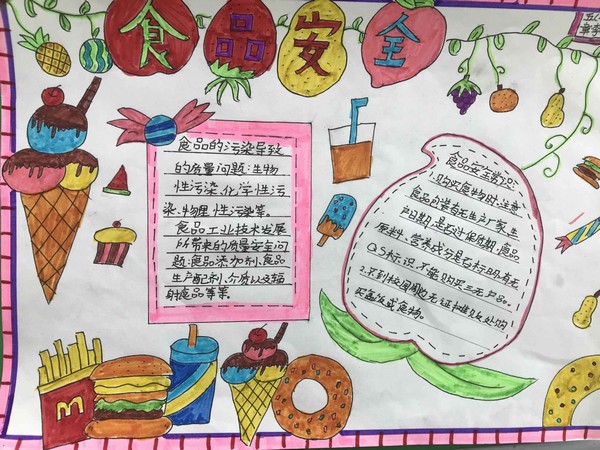 食品安全
食品的污染导致
的质量问题:生物
性污染、化学性污
染、物理性污染等。
食品工业技术发展
所带来的质量安全问
题:食品添加剂、食品
生产配剂、介质以及辐
射食品等等。
食品安全常识:
1.购买食物时,注意
食品包装有无生产厂家、生
产日期,是否过保质期,食品
原料、营养成分是否标明,有无
QS标识,不能购买三无产品。
2.不到校园周边无证摊贩处购
买
食物。
M